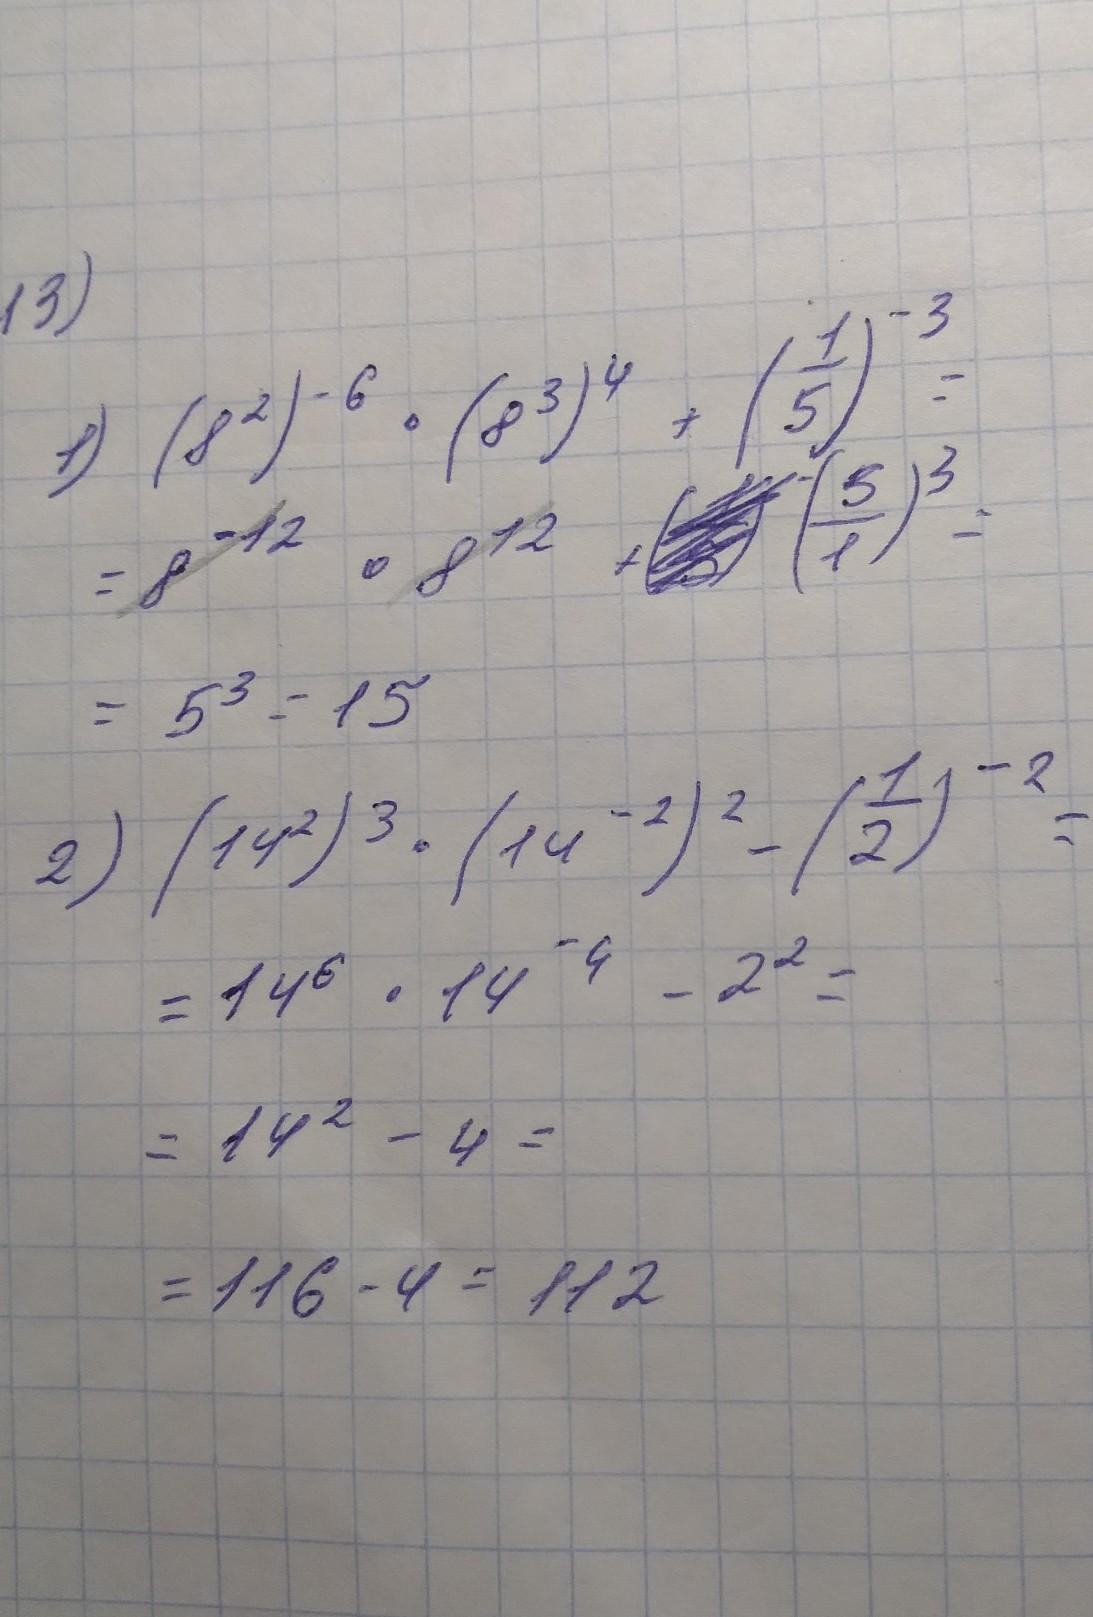 13)
1) (8²)⁻⁶ · (8³)⁴ + (1/5)⁻³ =
= 8⁻¹² · 8¹² + (5/1)³ =
= 5³ = 15
2) (14²)³ · (14⁻²)² - (1/2)⁻² =
= 14⁶ · 14⁻⁴ - 2² =
= 14² - 4 =
= 116 - 4 = 112